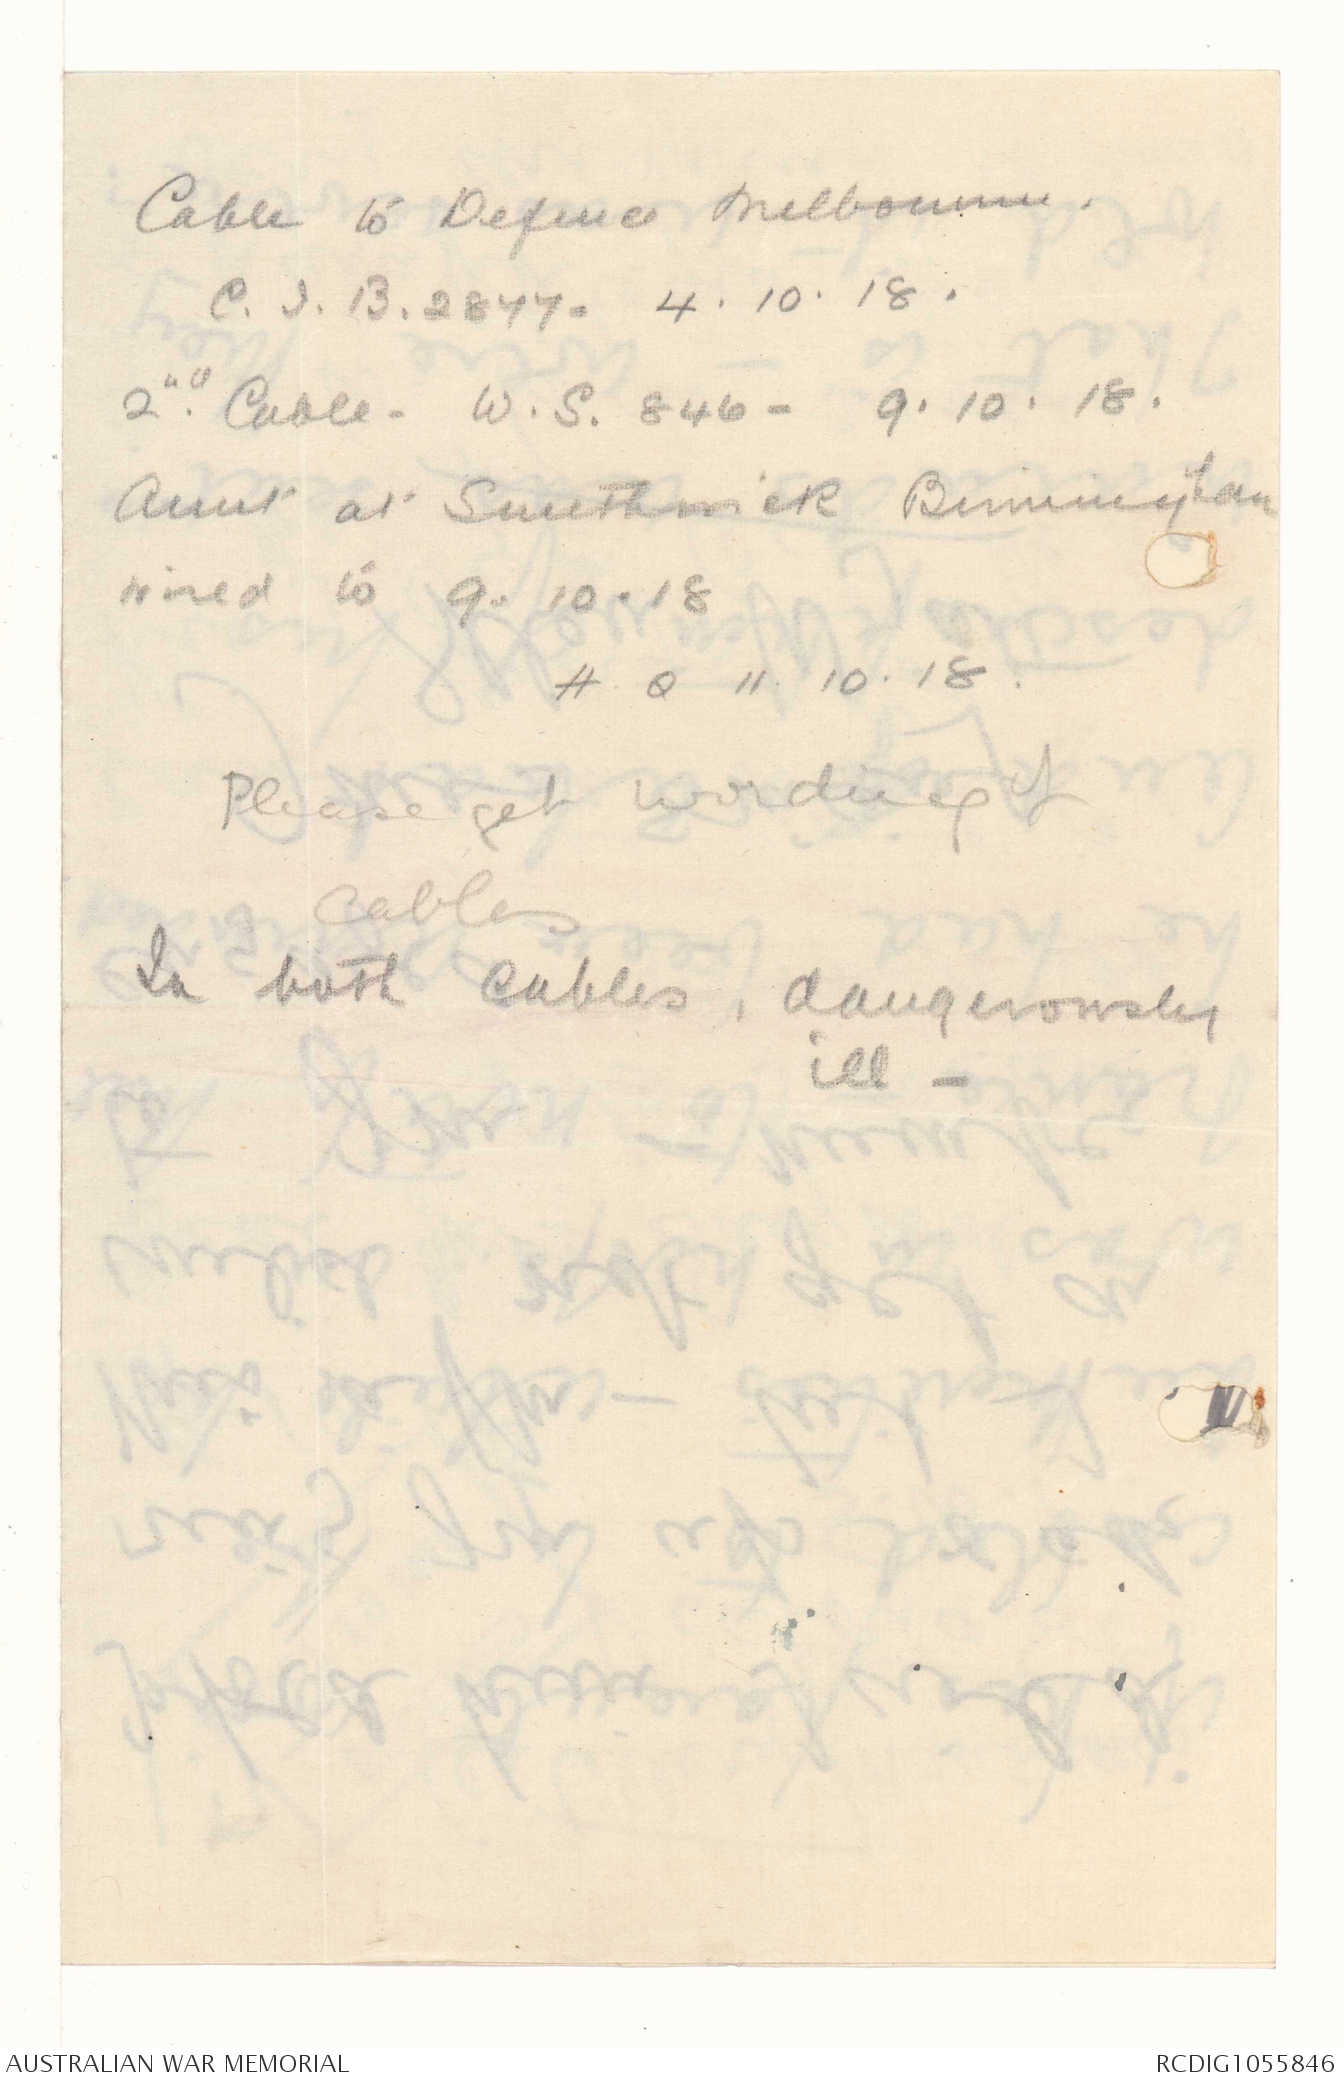 Cable to Defence Melbourne.
C. I. B. 2877. 4. 10. 18.
2nd. Cable - W. S. 846 - 9. 10. 18.
Aunt at Smethwick Birmingham
wired to 9. 10. 18
H Q 11. 10. 18.
Please get wording of
cables
In both cables, dangerously
ill -
AUSTRALIAN WAR MEMORIAL
RCDIG1055846